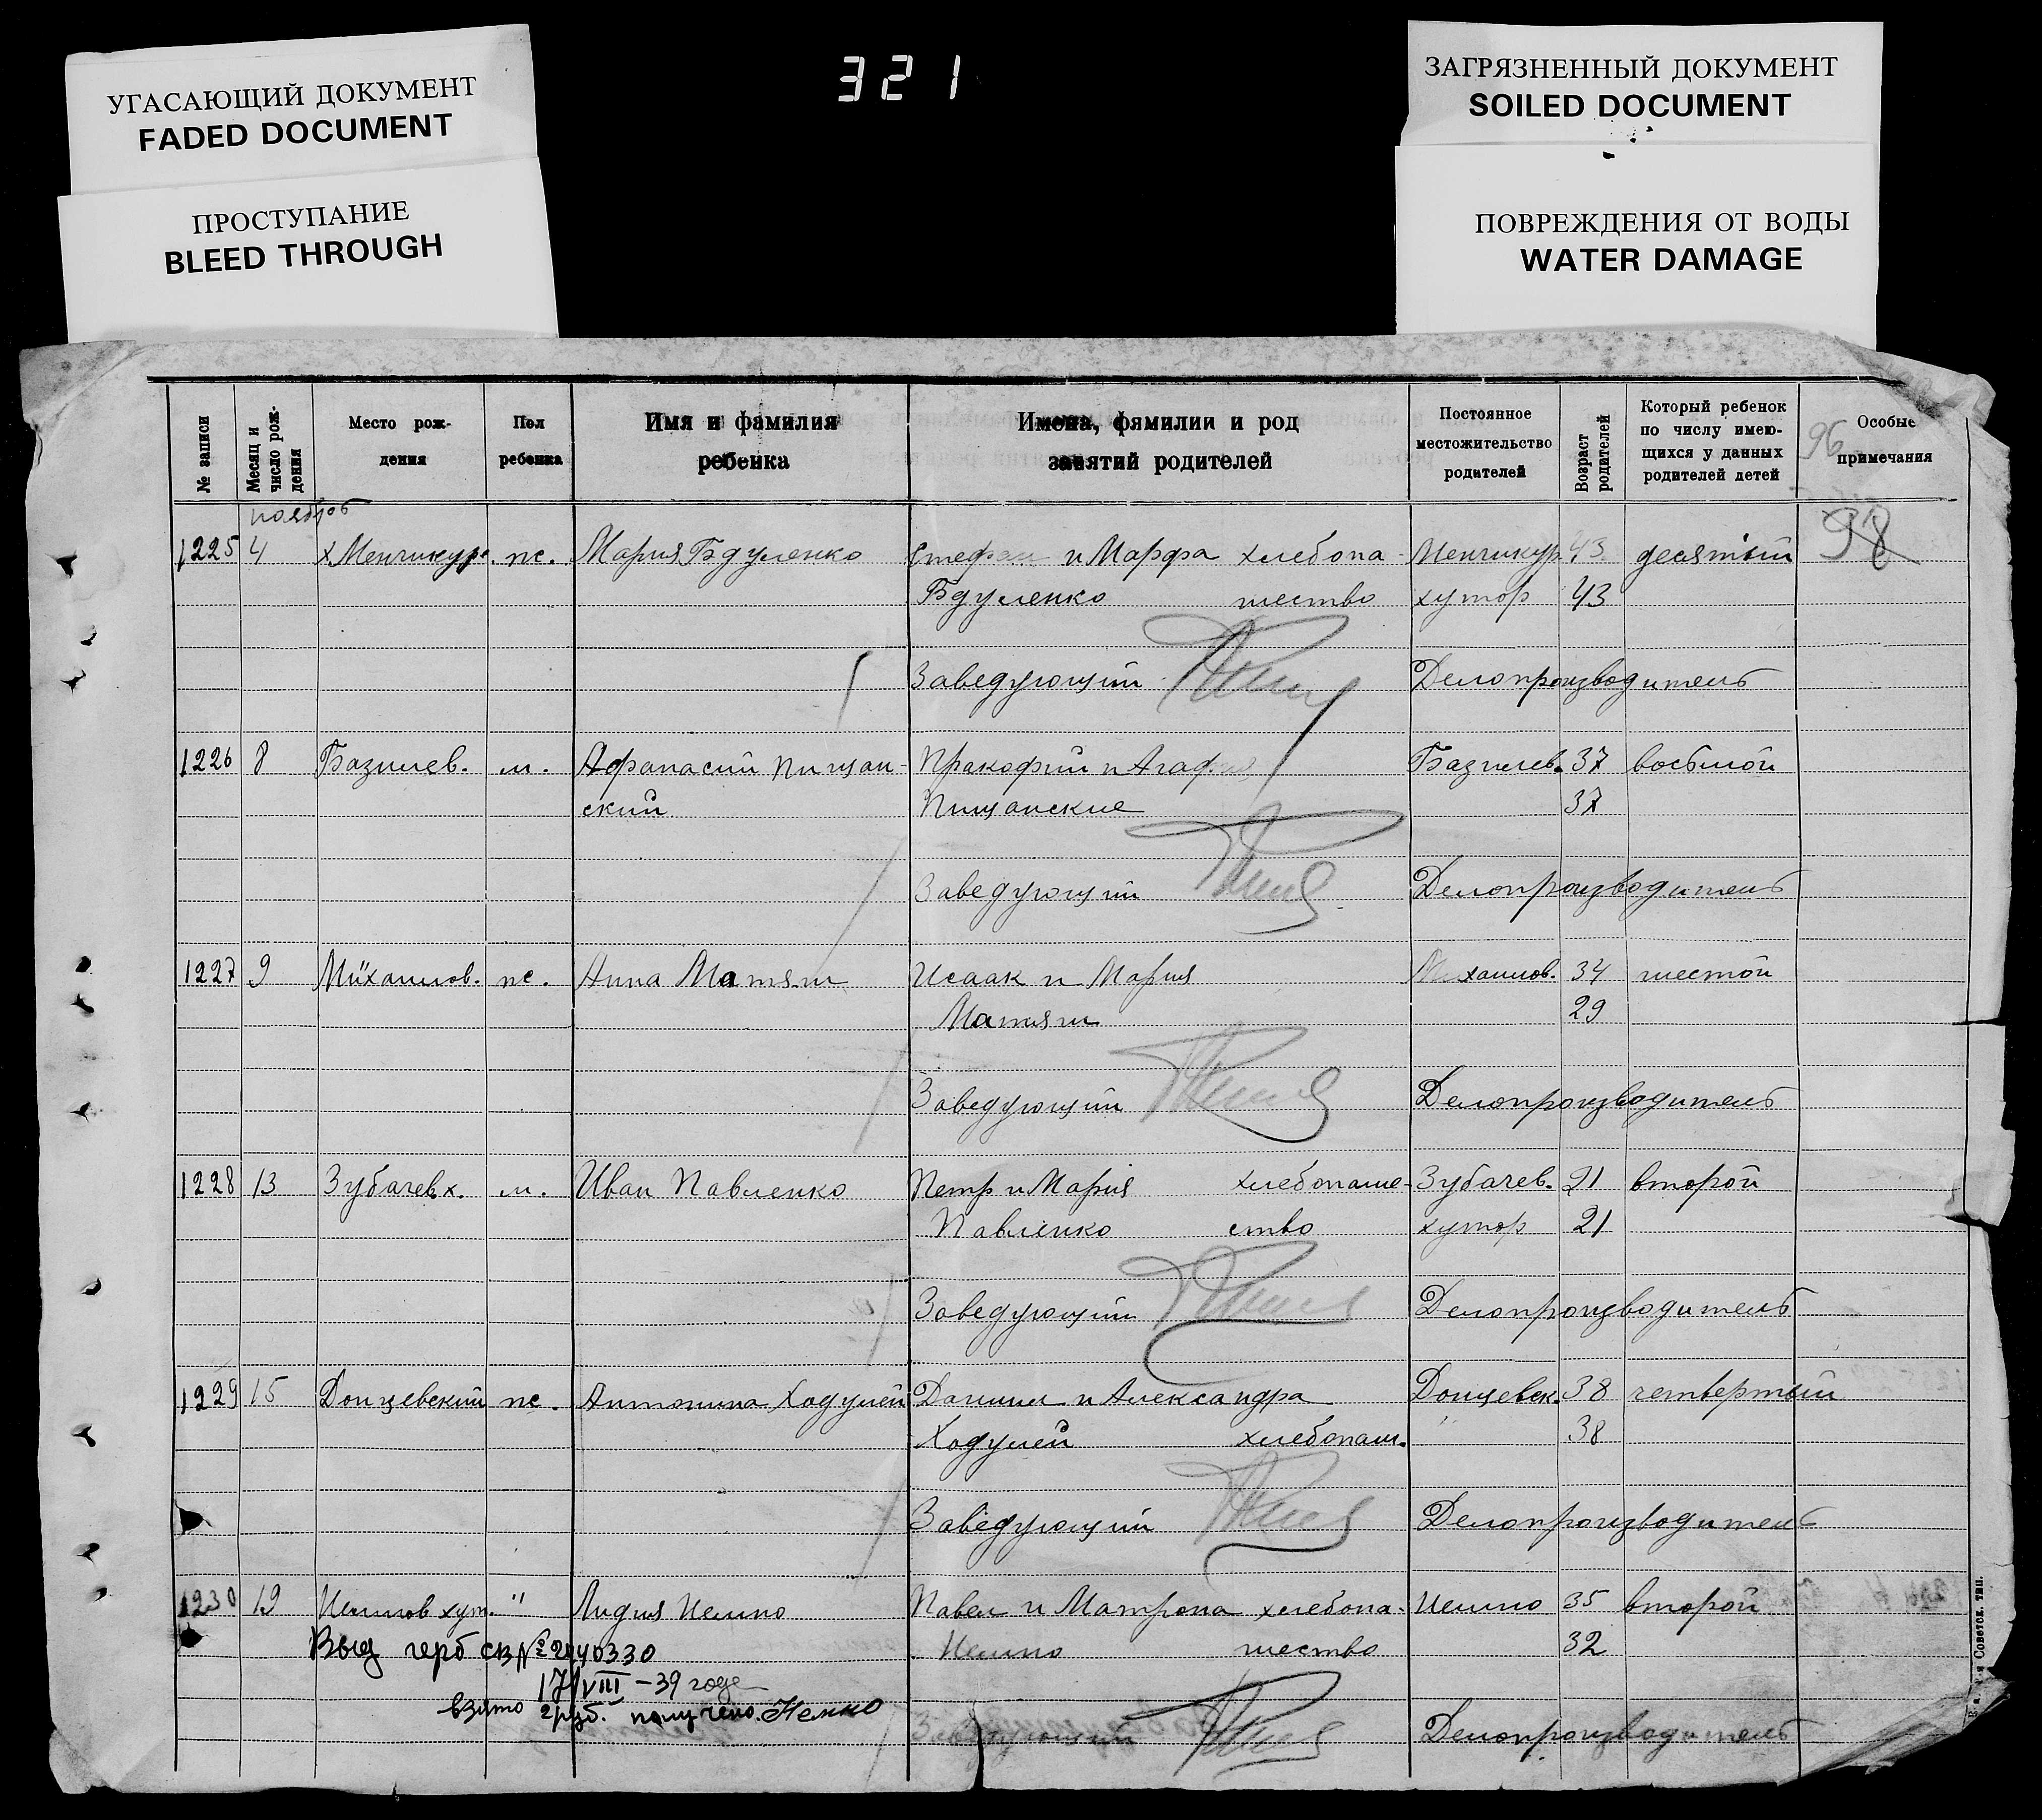 УГАСАЮЩИЙ ДОКУМЕНТ
FADED DOCUMENT
ПРОСТУПАНИЕ
BLEED THROUGH
321
ЗАГРЯЗНЕННЫЙ ДОКУМЕНТ
SOILED DOCUMENT
ПОВРЕЖДЕНИЯ ОТ ВОДЫ
WATER DAMAGE
№ записи
Месяц и число рож-дения
Место рож-
дения
Пол
ребенка
Имя и фамилия
ребенка
Имена, фямилии и род
занятий родителей
Постоянное
местожительство
родителей
Возраст родителей
Который ребенок
по числу имею-
щихся у данных
родителей детей
96
Особые
примечания
98
ноябрь
1225 4 х Менчикур. ж. Мария Бдуленко Стефан и Марфа хлебопа- Менчикур 43 десятый
Бдуленко шество хутор 43
Заведующий Делопроизводитель
1226 8 Базилев. м. Афанасий Пищан- Пракофий и Агаф Базилев. 37 восьмой
ский Пищанские 37
Заведующий Делопроизводитель
1227 9 Михайлов. ж. Анна Матяш Исаак и Мария Михайлов. 34 шестой
Матяш 29
Заведующий Делопроизводитель
1228 13 Зубачев х. м. Иван Павленко Петр и Мария хлебопаше- Зубачев. 21 второй
Павленко ство хутор 21
Заведующий Делопроизводитель
1229 15 Донцевский ж. Антонина Ходулей Даниил и Александра Донцевск. 38 четвертый
Ходулей хлебопаш. " 38
Заведующий Делопроизводитель
1230 19 хут. " Лидия Павел и Матрона хлебопа- 35 второй
шество 32
Выд герб св № 2440330
17/VIII-39 года
взято 2 руб. получено.
Заведующий Делопроизводитель
Советск. тип.